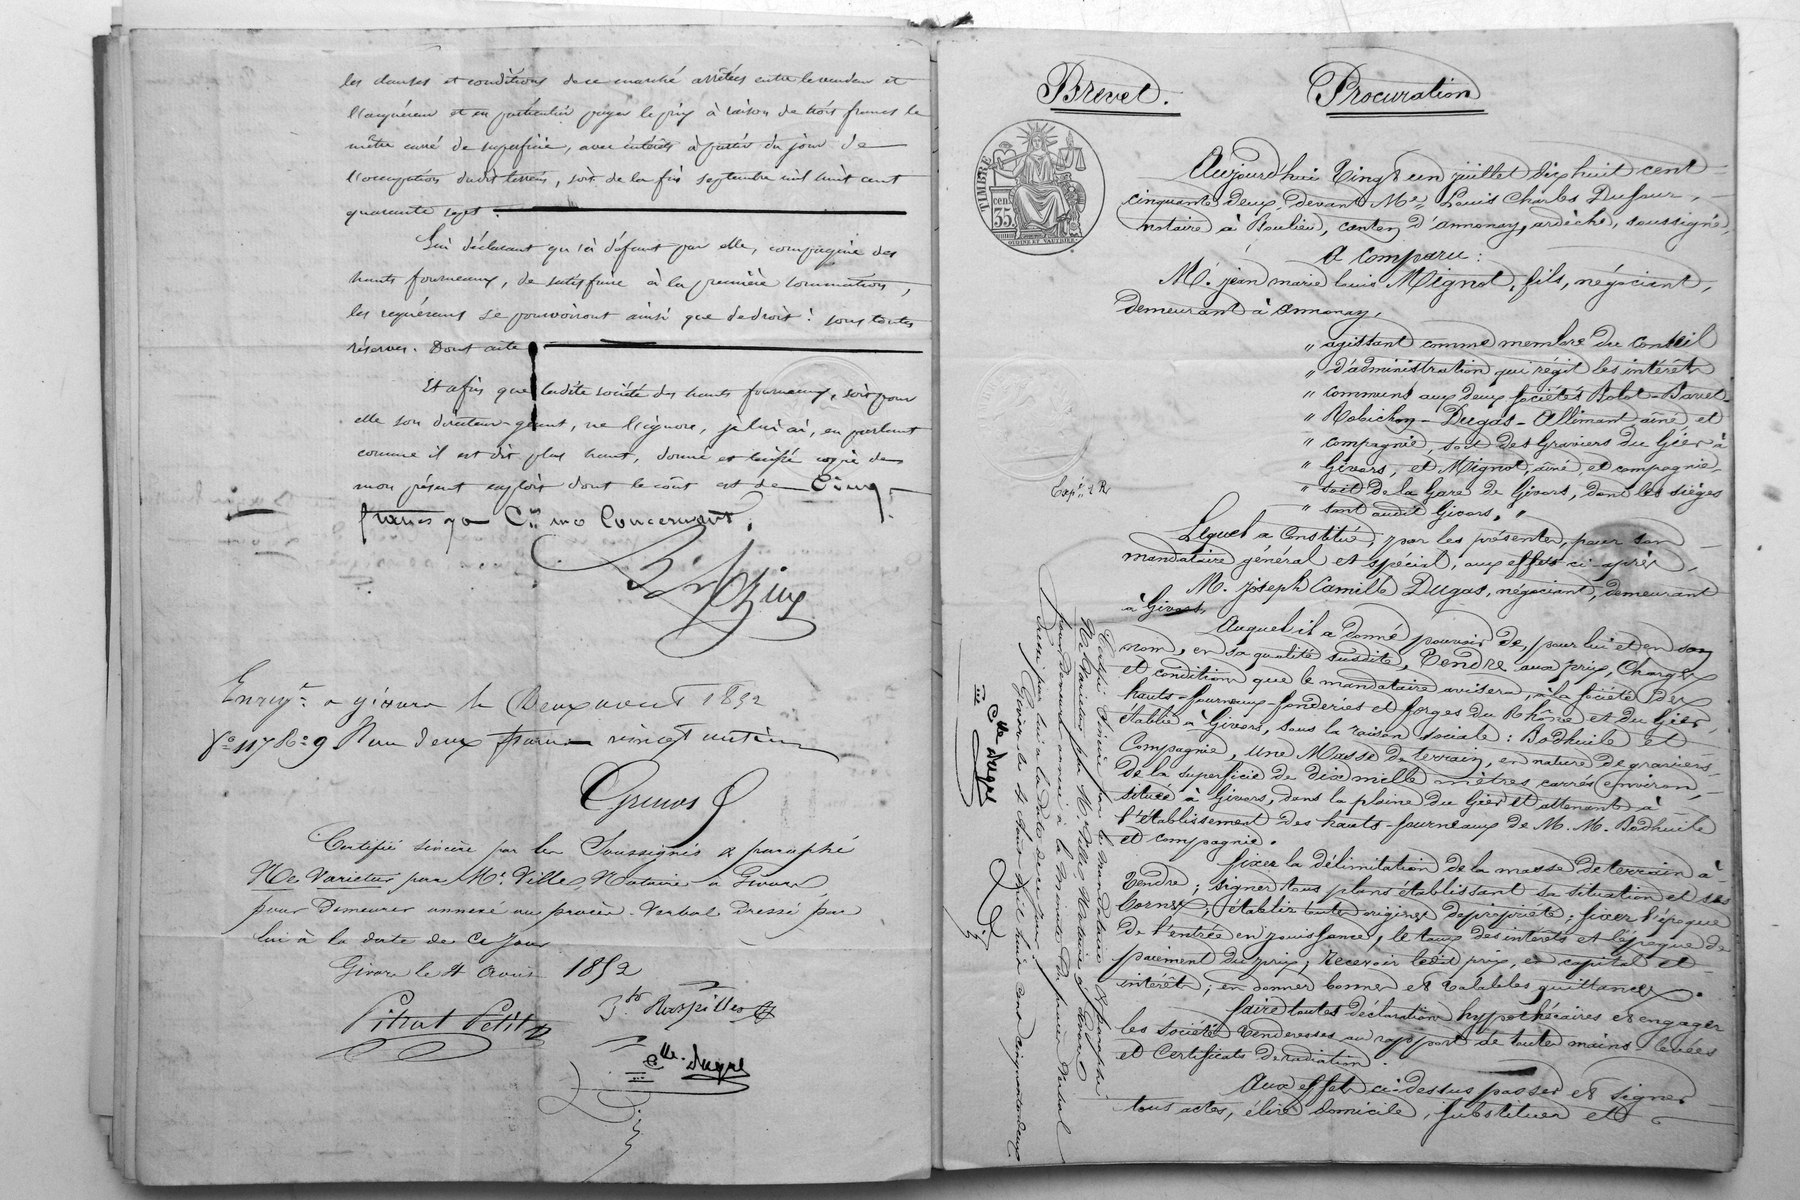 les clauses et conditions de ce marché arrêtées entre le vendeur et
l'acquéreur et en particulier payer le prix à raison de trois francs le
mètre carré de superficie, avec intérêts à partir du jour de
l'occupation dudit terrein, soit de la fin septembre mil huit cent
quarante sept.
Lui déclarant qu'à défaut par elle, compagnie des
hauts fourneaux, de satisfaire à la première sommation,
les requérans se pourvoiront ainsi que de droit : sous toutes
réserves. Dont acte
Et afin que ladite société des hauts fourneaux, soit pour
elle son directeur-gérant, ne l'ignore, je lui ai, en parlant
comme il est dit plus haut, donné et laissé copie de
mon présent exploit dont le coût est de Cinq
francs 90 Cmes me Concernant.
Enregt. à givors le Deux aout 1852
fo. 117 Ro. 9 Reçu deux francs vingt centimes
Certifié sincère par les Soussignés & paraphé
Ne Varietur par Me. Ville, Notaire à Givors
pour Demeurer annexé au procès-Verbal Dressé par
lui à la date de Ce jour
Givors le 4 Aout 1852
Pitrat Petit
Clle. Dugas
Brevet.
Procuration
TIMBRE
35
cen
OUDINE ET VAUTHIER
Aujourd'hui Vingt un juillet dix huit cent
cinquante deux, devant Me. Louis Charles Dufour,
notaire à Boulieu, canton d'annonay, ardèche, soussigné,
a Comparu :
M. jean marie louis Mignot, fils, négociant,
demeurant à annonay,
" agissant comme membre du Conseil
" d'administration qui régit les intérêts
" communs aux deux Sociétés Bolot-Bavet
" Robichon-Dugas-Allimant, ainé, et
" compagnie, soit des Graviers du Gier à
" Givors, et Mignot, ainé, et compagnie,
" soit de la Gare de Givors, dont les sièges
" sont audit Givors. "
Lequel a Constitué, par les présentes, pour son
mandataire général et spécial, aux effets ci-après,
M. joseph Camille Dugas, négociant, demeurant
à Givors,
Auquel il a donné pouvoir de, pour lui et en son
nom, en sa qualité susdite, Vendre aux prix, Charges
et condition que le mandataire avisera, à la Société des
hauts-fourneaux-fonderies et forges du Rhône et du Gier,
établie à Givors, sous la raison sociale : Bodhuile et
Compagnie, une Masse de terrain, en nature de graviers,
de la superficie de dix mille mètres carrés environ,
située à Givors, dans la plaine du Gier et attenant à
l'établissement des hauts-fourneaux de M. M. Bodhuile
et compagnie.
fixer la délimitation de la masse de terrain à
Vendre ; signer tous plans établissant sa situation et ses
bornes ; établir toutes origines de propriété ; fixer l'époque
de l'entrée en jouissance, le taux des intérêts et l'époque de
paiement du prix ; recevoir ledit prix, en capital et
intérêts ; en donner bonnes et Valables quittances.
faire toutes déclarations hypothécaires et engager
les sociétés Venderesses au rapport de toutes mains-levées
et Certificats de radiation.
Aux effets ci-dessus passer et signer
tous actes, élire domicile, substituer et
Certifié Sincère par le mandataire & paraphé
Ne Varietur par Me Ville, Notaire à Givors
pour demeurer annexé à la minute du procès Verbal
Dressé par lui à la date de ce jour
Givors le 4 Aout Mil huit cent cinquante deux
Clle Dugas